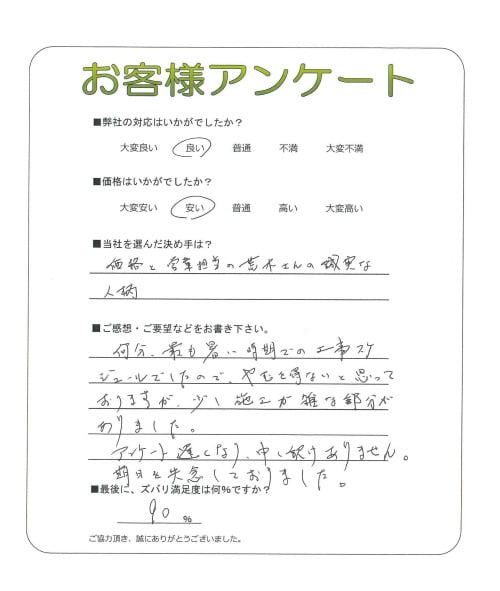 お客様アンケート
■弊社の対応はいかがでしたか？
大変良い 良い 普通 不満 大変不満
■価格はいかがでしたか？
大変安い 安い 普通 高い 大変高い
■当社を選んだ決め手は？
価格と営業担当の荒木さんの誠実な
人柄
■ご感想・ご要望などをお書き下さい。
何分、最も暑い時期での工事スケ
ジュールでしたので、やむを得ないと思って
おりますが、少し施工が雑な部分が
ありました。
アンケート遅くなり、申し訳けありません。
期日を失念しておりました。
■最後に、ズバリ満足度は何％ですか？
90 %
ご協力頂き、誠にありがとうございました。